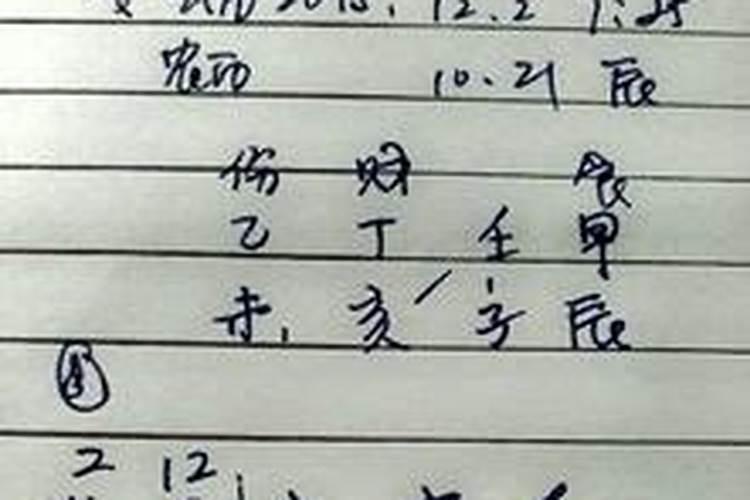 2015. 12.2 7:25
农历 10.21 辰
伤 财 食
乙 丁 壬 甲
未 亥 子 辰
2 12